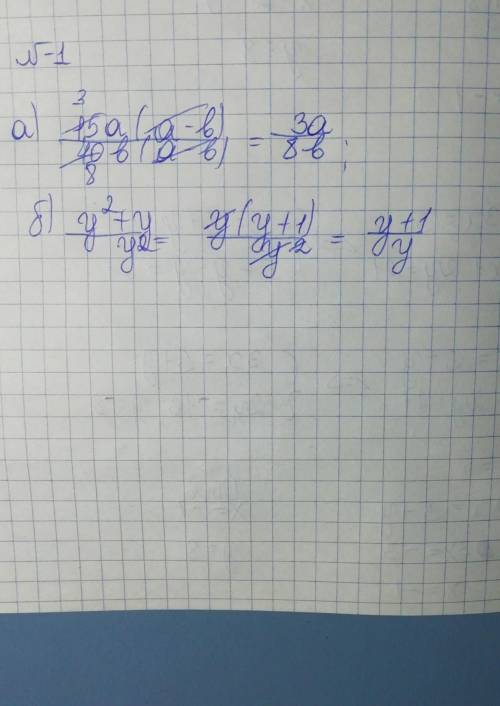 №-1
а) 15a(a-b)/40b(a-b) = 3a/8b;
б) y²+y/y2 = y(y+1)/y2 = y+1/y